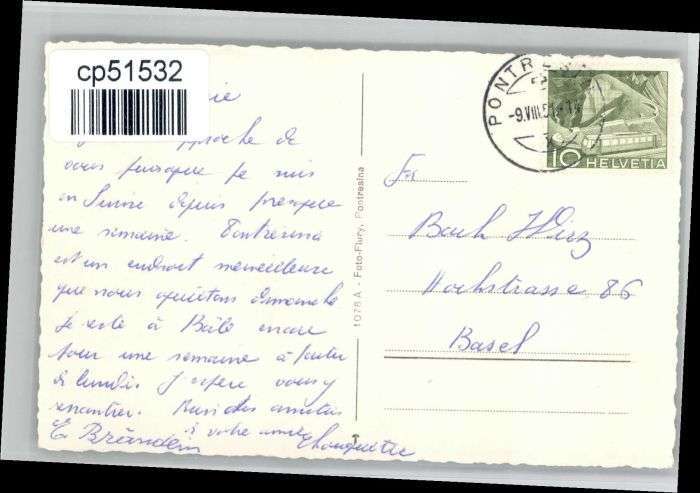 cp51532
proche de
vous puisque je suis
en Suisse depuis presque
une semaine. Pontresina
est un endroit merveilleux
que nous quittons dimanche
Je reste à Bâle encore
pour une semaine à partir
de lundi. J'espère vous y
rencontrer. amitiés
à votre amie
E Brändlin
PONTRESINA
-9.VIII.51
10 HELVETIA
1078 A - Foto-Flury, Pontresina
Bach Wirz
Hochstrasse 86
Basel